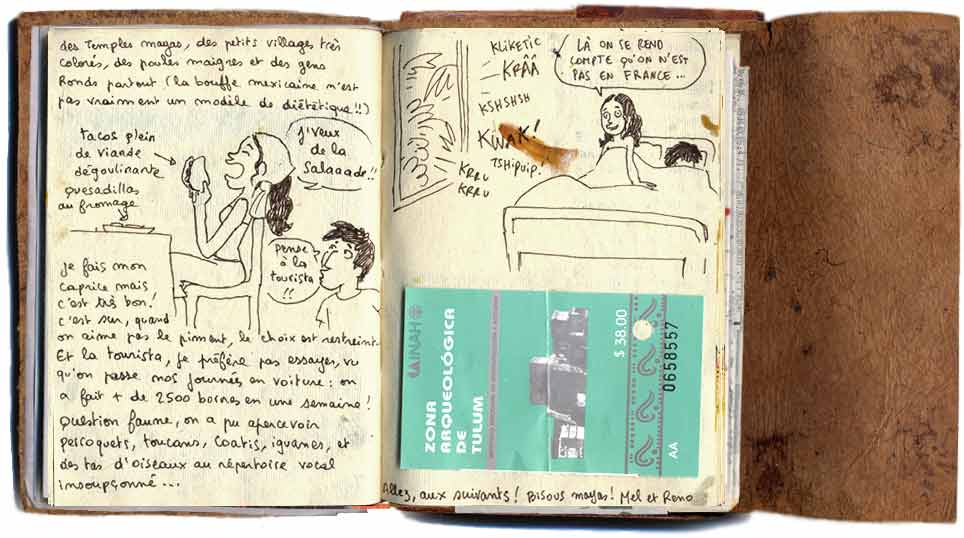 des Temples mayas, des petits villages très
colorés, des poules maigres et des gens
Ronds partout (la bouffe mexicaine n'est
pas vraiment un modèle de diététique !!)
tacos plein
de viande
dégoulinante
quesadillas
au fromage
J'veux
de la
Salaaade !!
pense
à la
tourista
!!
Je fais mon
caprice mais
c'est très bon !
c'est sur, quand
on aime pas le piment, le choix est restreint
Et la tourista, je préfère pas essayer, vu
qu'on passe nos journées en voiture : on
a fait + de 2500 bornes en une semaine !
Question faune, on a pu apercevoir
perroquets, toucans, coatis, iguanes, et
des tas d'oiseaux au répertoire vocal
insoupçonné ...
KLIKETIC
KRÂÂ
KSHSHSH
KWAK!
TSHIPUIP!
KRRU
KRRU
LÀ ON SE REND
COMPTE QU'ON N'EST
PAS EN FRANCE ...
INAH
ZONA
ARQUEOLÓGICA
DE
TULUM
$ 38.00
0658557
AA
Allez, aux suivants ! Bisous mayas ! Mel et Reno